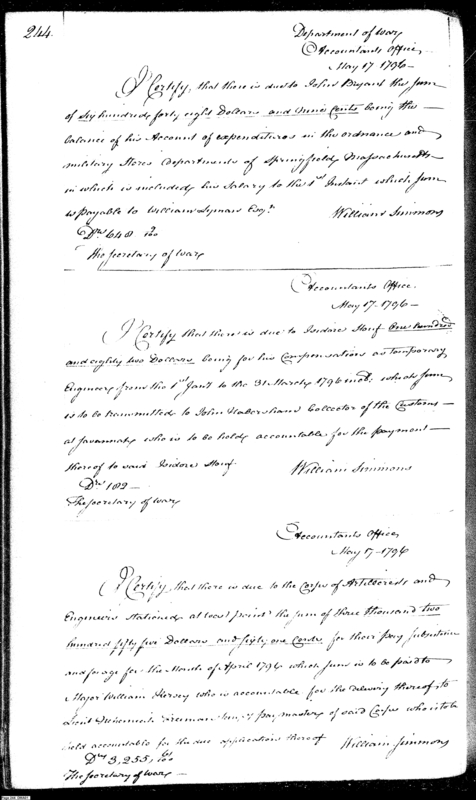 244.
Department of War
Accountants Office
May 17. 1796 —
I Certify, that there is due to John Bryant the sum
of Six hundred forty eight Dollars and Nine Cents being the
balance of his Account of expenditures in the ordnance and
military Stores Departments of Springfield Massachusetts
in which is included his Salary to the 1st Instant which sum
is payable to William Lyman Esqr.
William Simmons
Drs 648. 9/100
The Secretary of War
Accountants Office.
May 17. 1796 —
I Certify that there is due to Isidore Stouf One hundred
and eighty two Dollars being for his Compensation as temporary
Engineer, from the 1st Jany to the 31 March 1796 which sum
is to be transmitted to John Habersham Collector of the Customs
at Savannah, who is to be held accountable for the payment
thereof to said Isidore Stouf.
William Simmons
Drs 182 —
The Secretary of War
Accountants Office
May 17. 1796
I Certify, that there is due to the Corps of Artillerists and
Engineers stationed at West point the sum of three thousand two
hundred fifty five Dollars and sixty one Cents, for their pay subsistence
and forage for the Month of April 1796 which sum is to be paid to
Major William Kersey who is accountable for the delivery thereof, to
Lieut Freeman paymaster of said Corps who is to be
held accountable for the due application thereof
William Simmons
Drs 3,255, 61/100
The Secretary of War —